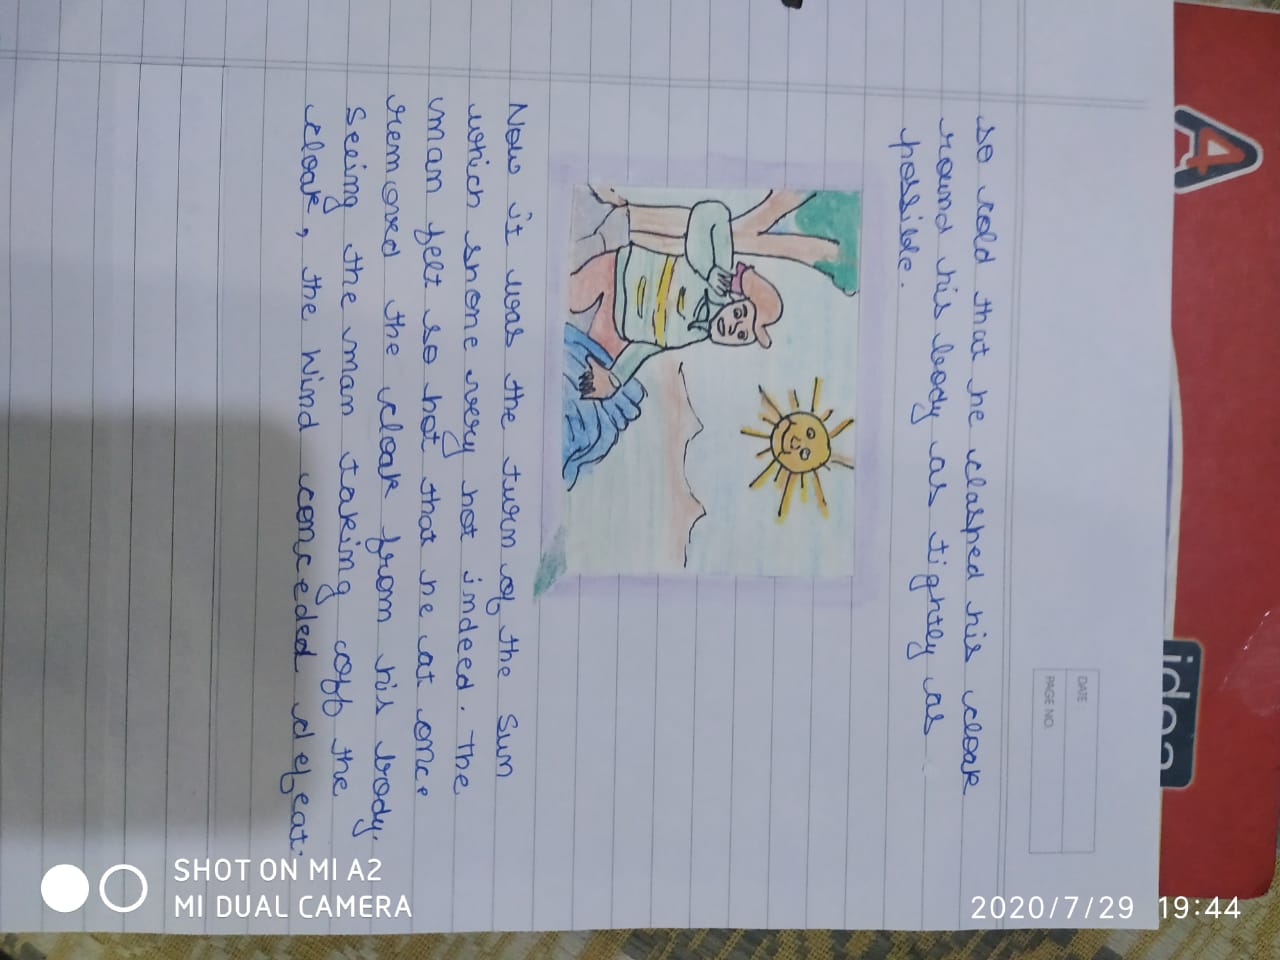 DATE
PAGE NO.
so cold that he clasped his cloak
round his body as tightly as
possible.
Now it was the turn of the Sun
which shone very hot indeed. The
man felt so hot that he at once
removed the cloak from his body.
Seeing the man taking off the
cloak, the Wind conceded defeat.
SHOT ON MI A2
MI DUAL CAMERA
2020/7/29 19:44